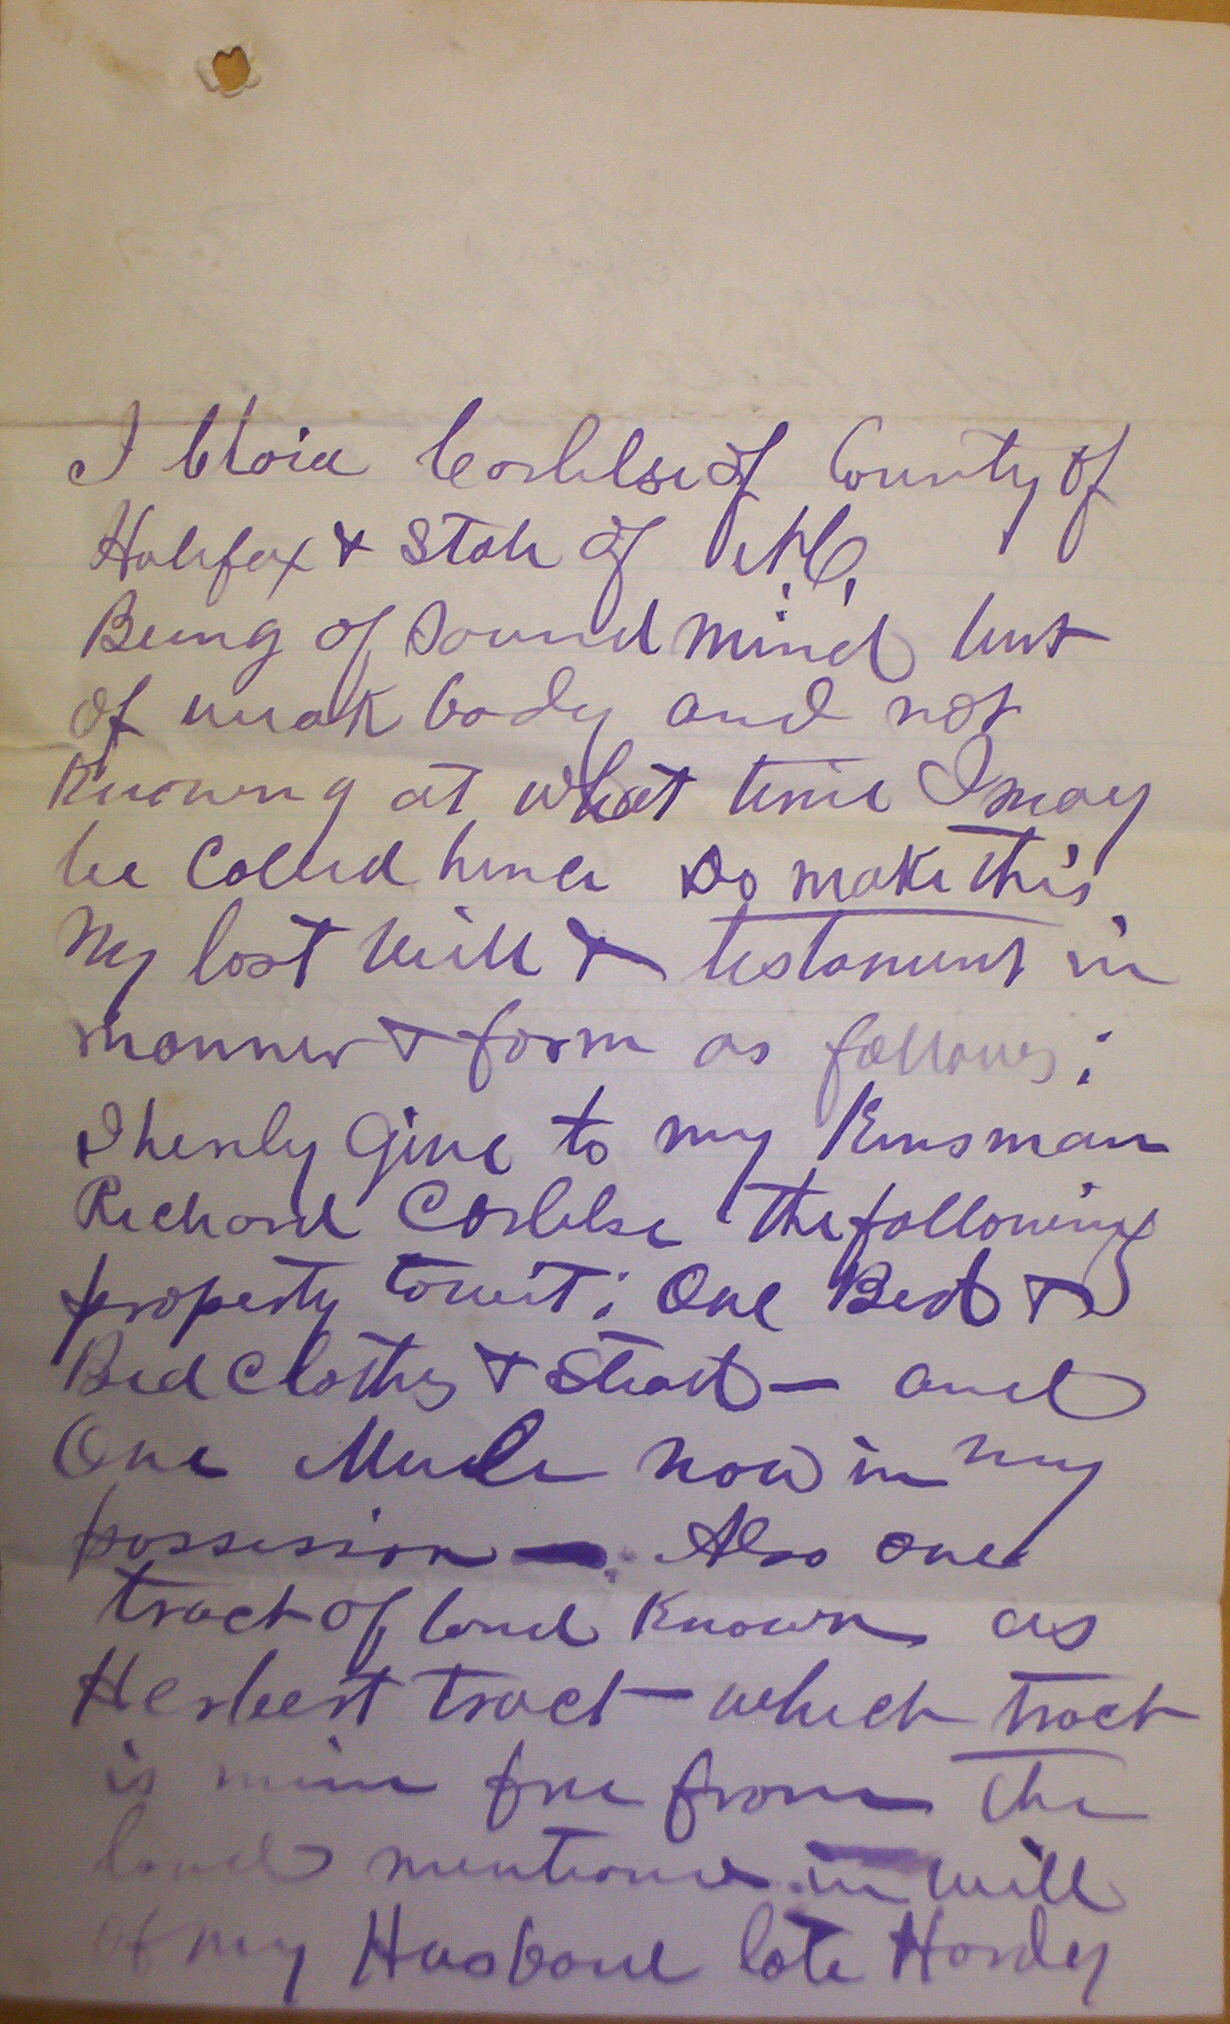 I Cloia Corbhse of County of
Halifax & State of N.C.
Being of Sound mind but
of weak body and not
Knowing at what time I may
be Called hence Do make this
My last Will & testament in
manner & form as follows:
I herely Give to my Kinsman
Richard the following
property towit: One Bed &
Bed Clothes & Stead — and
One Mule now in my
possession — Also one
tract of land Known as
Herbert tract — which tract
is mine free from the
land mentioned in will
of my Husband late Hardy